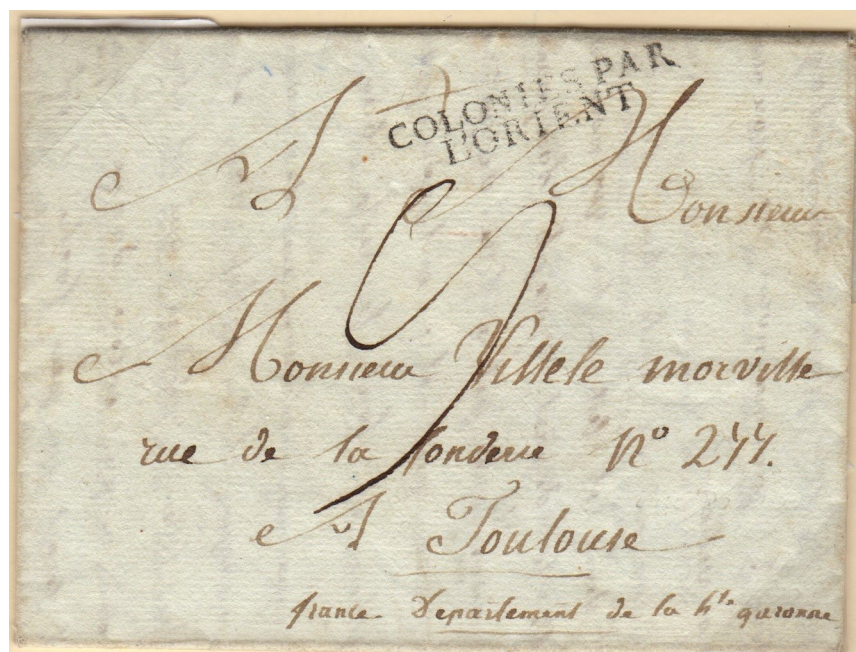 COLONIES PAR
L'ORIENT
A Monsieur
9
Monsieur Villele morville
rue de la fonderie N° 277.
A Toulouse
france Departement de la h.te garonne